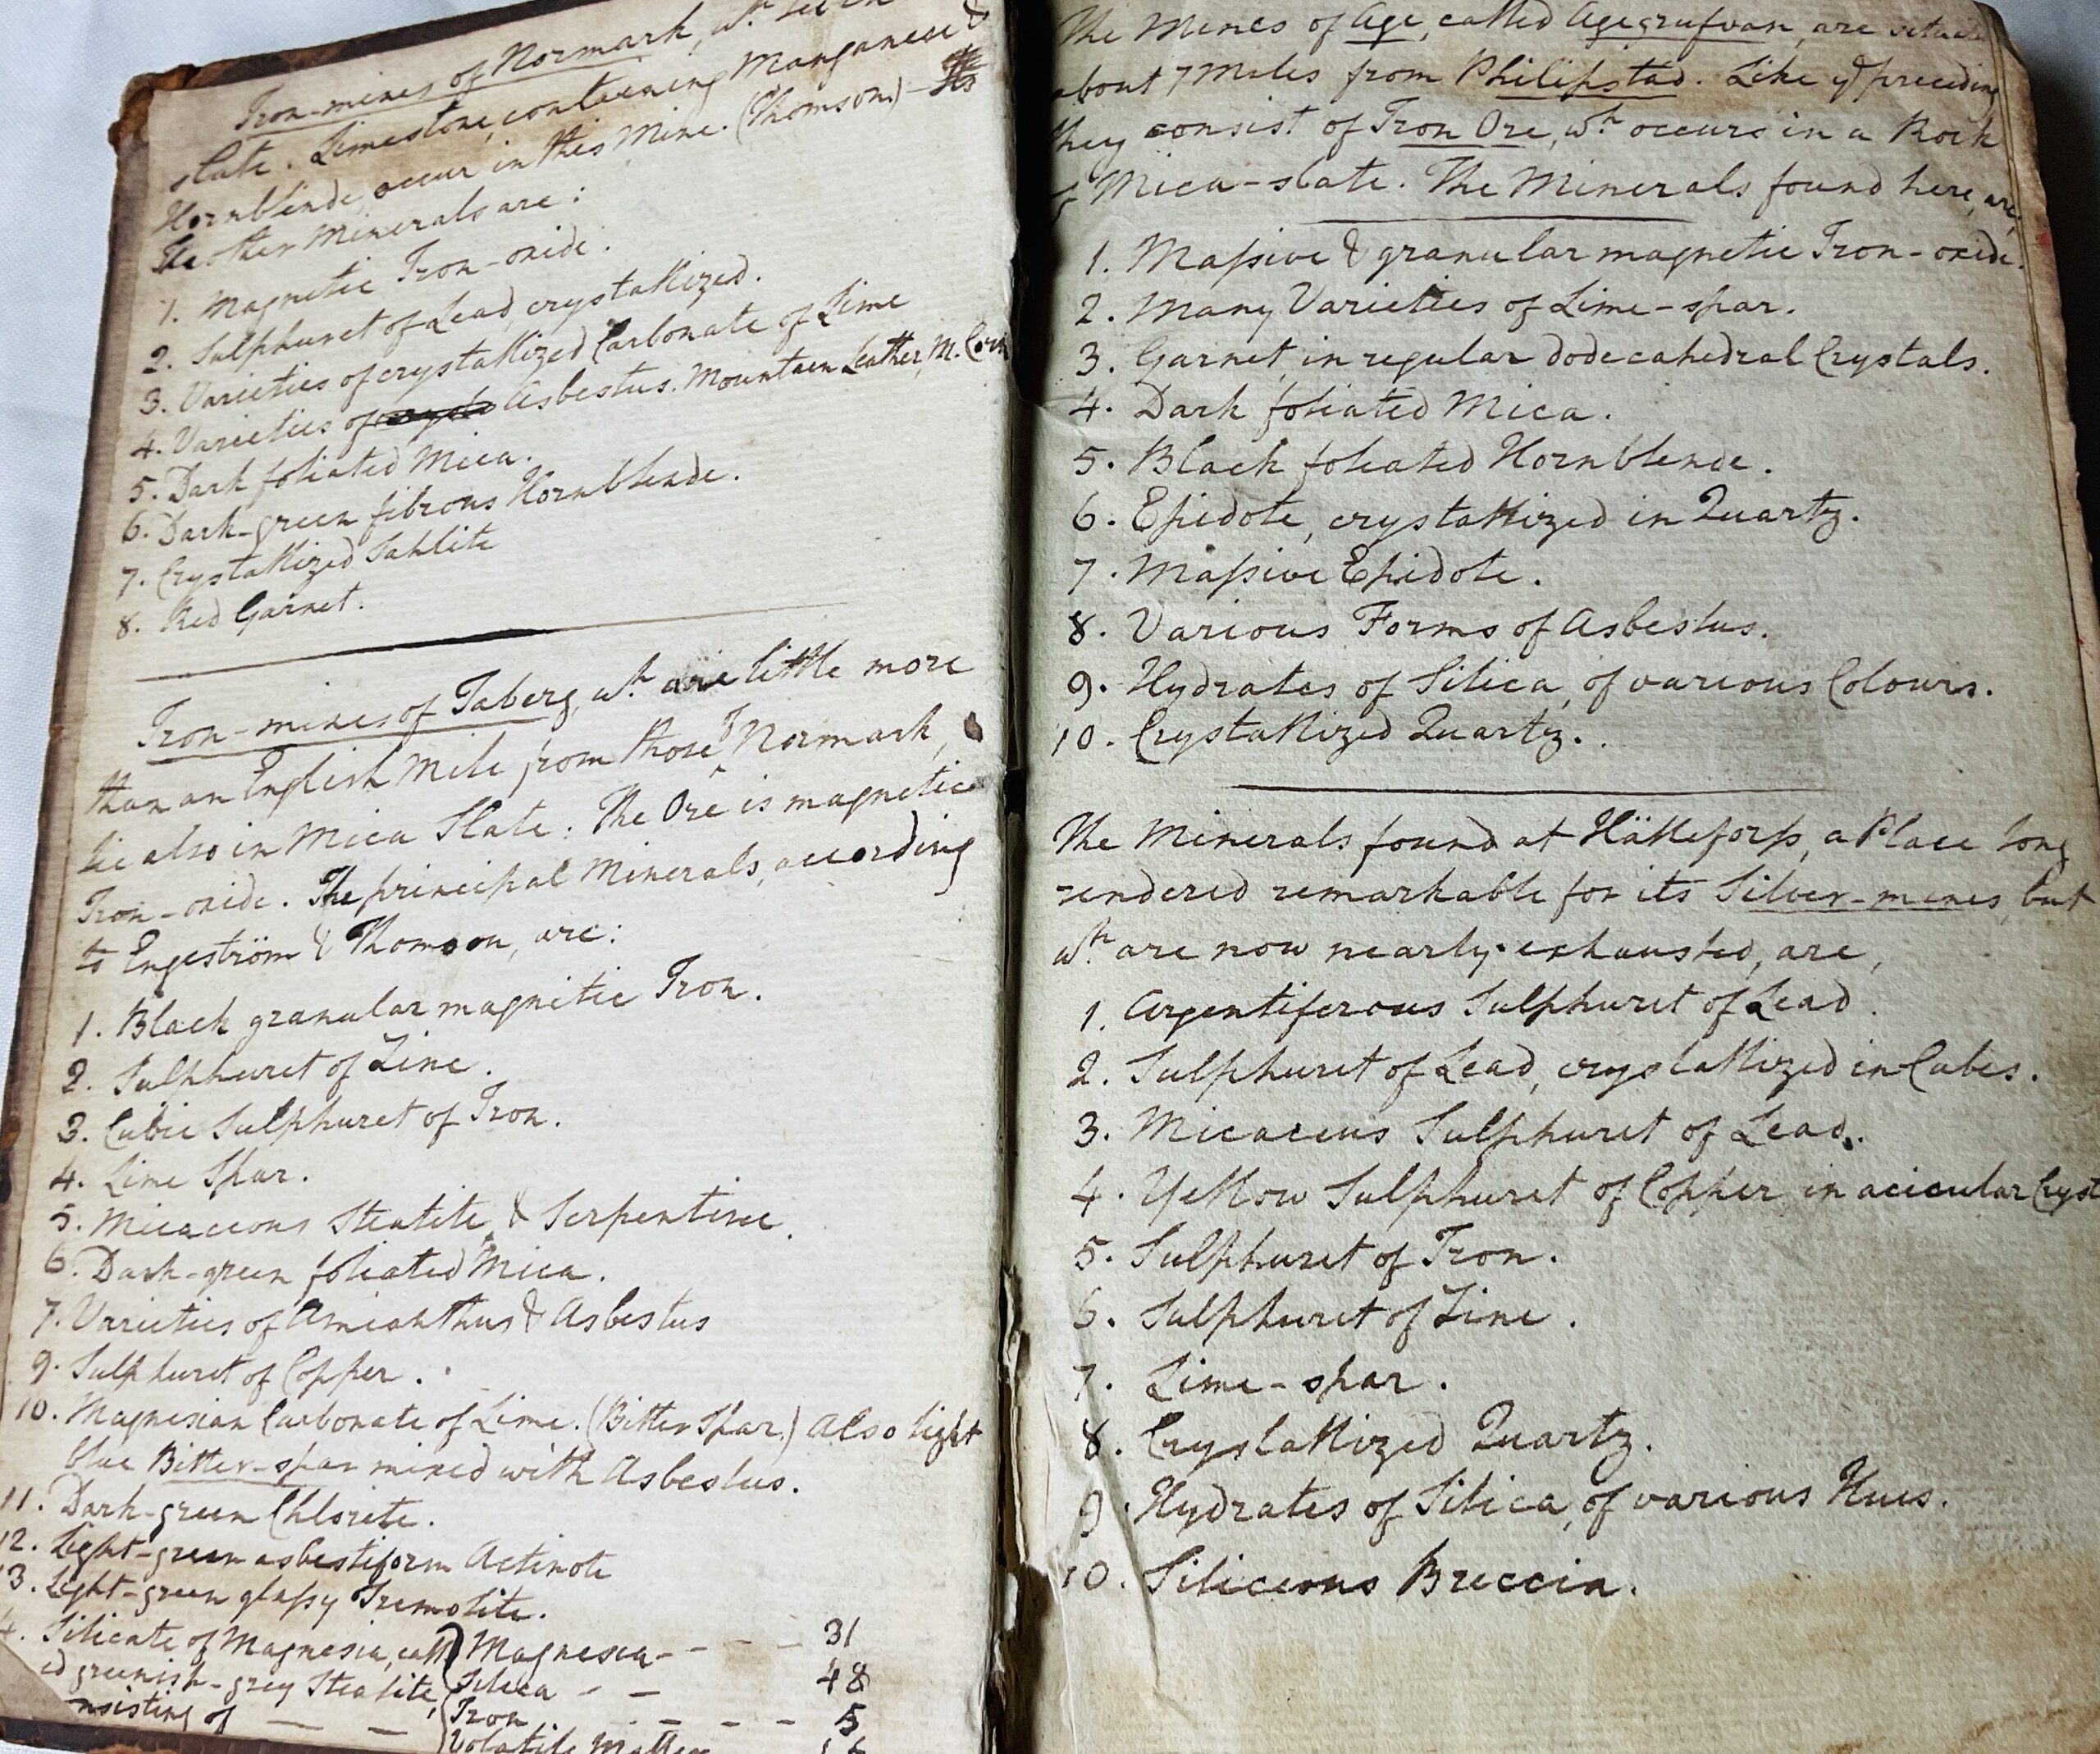 Iron-mines of Normark, wh.
slate. Limestone, containing Manganese &
Hornblende, occur in this Mine. (Thomson.) —
The other Minerals are:
1. Magnetic Iron-oxide.
2. Sulphuret of Lead, crystallized.
3. Varieties of crystallized Carbonate of Lime
4. Varieties of Asbestus. Mountain Leather, M. Cork
5. Dark foliated Mica.
6. Dark-green fibrous Hornblende.
7. Crystallized Sahlite
8. Red Garnet.
Iron-mines of Taberg, wh. are little more
than an English Mile from those of Normark,
lie also in Mica Slate. The Ore is magnetic
Iron-oxide. The principal Minerals, according
to Engeström & Thomson, are:
1. Black granular magnetic Iron.
2. Sulphuret of Zinc.
3. Cubic Sulphuret of Iron.
4. Lime Spar.
5. Micaceous Steatite, & Serpentine.
6. Dark-green foliated Mica.
7. Varieties of Amianthus & Asbestus
9. Sulphuret of Copper.
10. Magnesian Carbonate of Lime. (Bitter Spar.) Also light
blue Bitter-spar mixed with Asbestus.
11. Dark-green Chlorite.
12. Light-green asbestiform Actinote
13. Light-green glassy Tremolite.
4. Silicate of Magnesia, call Magnesia - - - - 31
ed greenish-grey Steatite, Silica - - 48
nsisting of — — Iron - - - - 5
Volatile Matter
The Mines of Age, called Agegrufvan, are
about 7 Miles from Philipstad. Like ye. preceding
they consist of Iron Ore, wh. occurs in a Rock
of Mica-slate. The Minerals found here, are;
1. Massive & granular magnetic Iron-oxide.
2. Many Varieties of Lime-spar.
3. Garnet, in regular dodecahedral Crystals.
4. Dark foliated Mica.
5. Black foliated Hornblende.
6. Epidote, crystallized in Quartz.
7. Massive Epidote.
8. Various Forms of Asbestus.
9. Hydrates of Silica, of various Colours.
10. Crystallized Quartz.
The Minerals found at Hällefors, a Place long
rendered remarkable for its Silver-mines, but
wh. are now nearly exhausted, are,
1. Argentiferous Sulphuret of Lead.
2. Sulphuret of Lead, crystallized in Cubes.
3. Micaceous Sulphuret of Lead.
4. Yellow Sulphuret of Copper in acicular Cryst
5. Sulphuret of Iron.
6. Sulphuret of Zinc.
7. Lime-spar.
8. Crystallized Quartz.
9. Hydrates of Silica, of various Hues.
10. Siliceous Breccia.